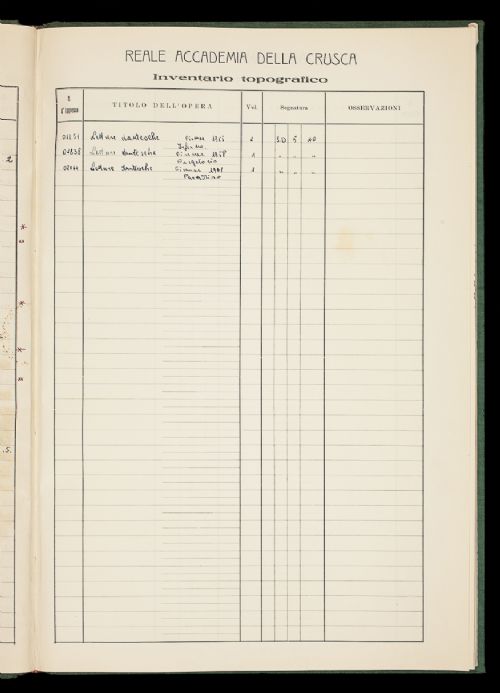 2
.5.
REALE ACCADEMIA DELLA CRUSCA
Inventario topografico
N. d'ingresso TITOLO DELL'OPERA Vol. Segnatura OSSERVAZIONI
Letture dantesche Firenze 2 SD 5
Inferno
Letture dantesche Firenze 1 " " "
Purgatorio
Letture dantesche Firenze 1 " " "
Paradiso